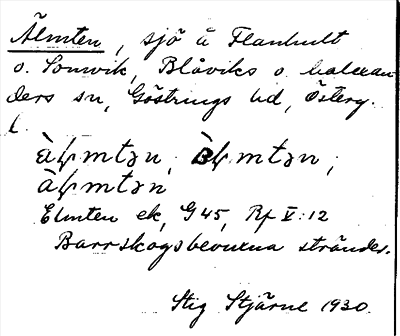 Älmten, sjö å Flanhult
o. Sonvik, Blåviks o. Malexan-
ders sn, Göstrings hd, Österg.
l.
Elmten ek, G 45, Rf V:12
Barrskogsbevuxna stränder.
Stig Stjärne 1930.